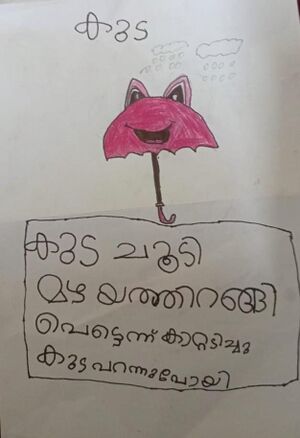 കുട
കുട ചൂടി
മഴ യത്തിറങ്ങി
പെട്ടെന്ന് കാറ്റടിച്ചു
കുട പറന്നുപോയി